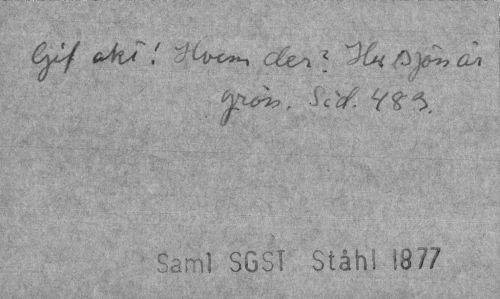 Gif akt! Hvem der? Hur sjön är
grön. Sid. 483.
Saml SGST Ståhl 1877